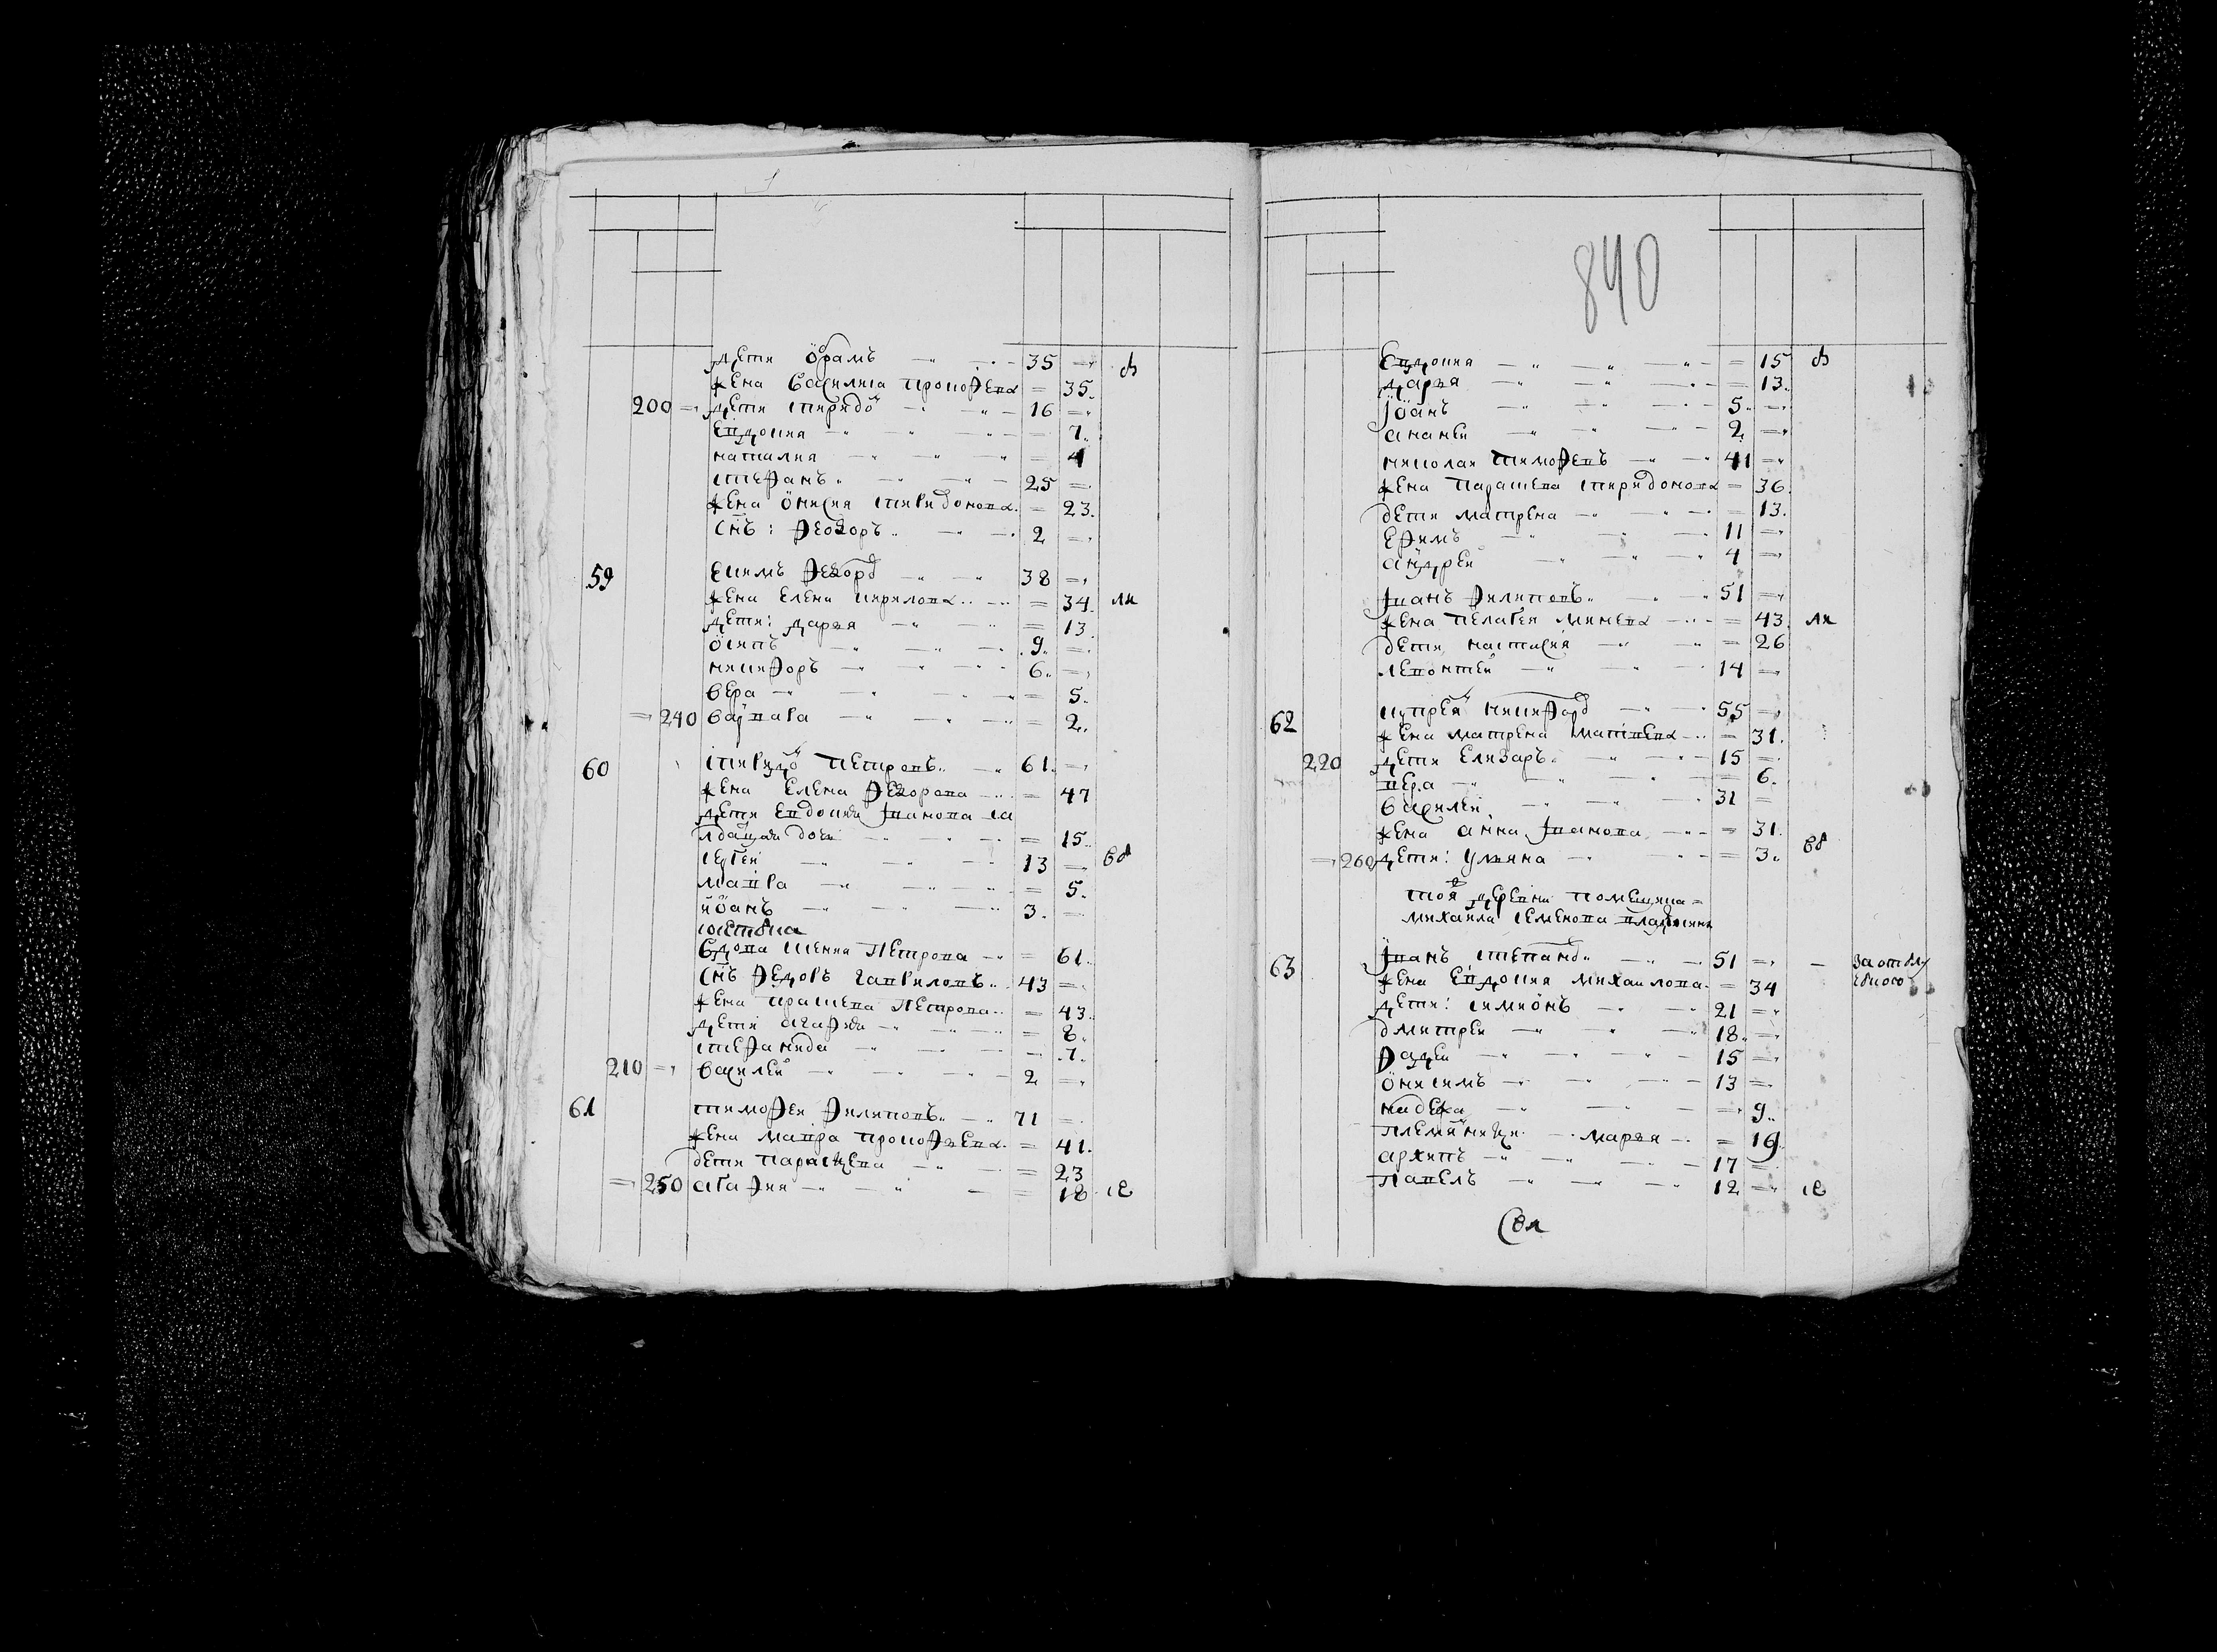 дети Ѳрамъ 35 =
жена василиса прокофева = 35.
200 = дети спиридо 16 =
Евдокия = 7.
наталия = 4
стефанъ 25 =
жена Онисия спиридонова = 23.
снъ: Феодоръ 2 =
59 Екимъ Федоро 38 =
жена Елена кирилова = 34. ли
дети: дарья = 13.
Осипъ 9. =
никифоръ 6. =
вера = 5.
= 240 варвара = 2.
60 спиридо петровъ 61. =
жена Елена Федорова = 47
дети Евдокия Iванова
вдавая дочь = 15.
сергей 13 =
мавра = 5.
иоанъ 3. =
вдова Петрова = 61.
снъ Федоръ гавриловъ 43 =
жена прасковя Петрова = 43.
дети агафия = 8.
стефанида = 7.
210 = василей 2 =
61 тимофеи Филиповъ 71 =
жена мавра прокофьева = 41.
дети парасковя = 23
= 250 агафия = 18 се
840
Евдокия = 15
дарья = 13.
Iоанъ 5. =
ананеи 2. =
николаи тимофевъ 41 =
жена парасковя спиридонова = 36.
дети матрена = 13.
Ефимъ 11 =
андреи 4 =
Iванъ Филиповъ 51 =
жена пелагея минева = 43. ли
дети настасия = 26
левонтеи 14 =
62 купреи никифоро 55 =
жена матрена матвева = 31.
220 дети Елизаръ 15 =
вера = 6.
василеи 31 =
жена анна Iванова = 31.
= 260 дети: Ульяна = 3.
тоя деревни помещика =
михаила семенова
63 Iванъ степано 51 = —
жена Евдокия михаилова = 34
дети: симионъ 21 =
дмитреи 18. =
Фадеи 15 =
Онисимъ 13 =
надежа = 9.
племяники марья = 19.
архипъ 17 =
павелъ 12 = се